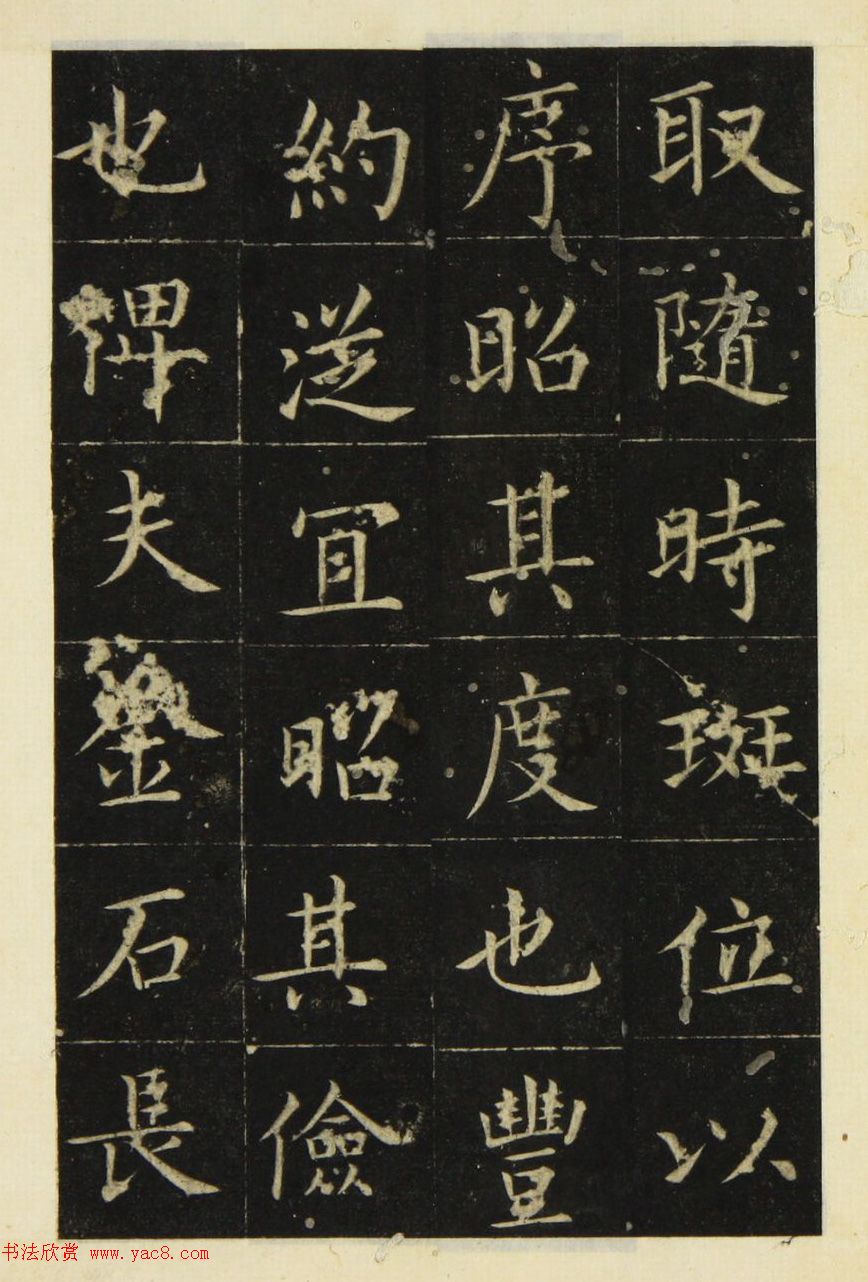 取隨時班位以
序昭其度也豐
約從宜昭其儉
也俾夫鑿石長
书法欣赏 www.yac8.com